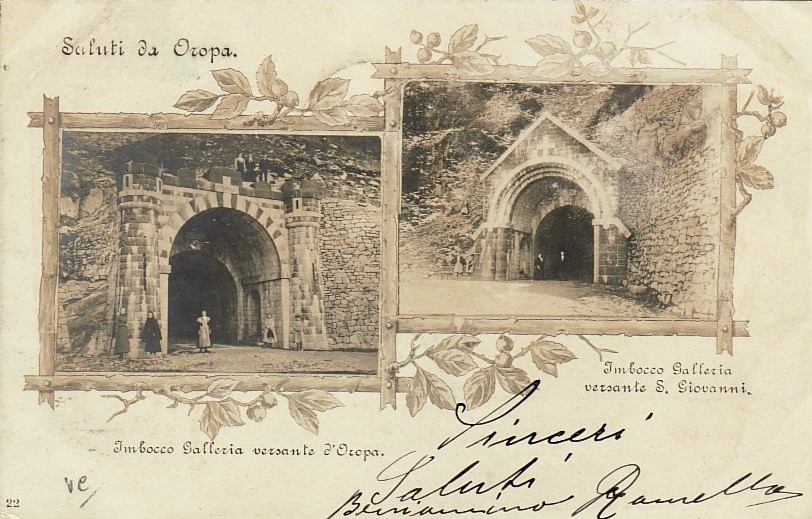 Saluti da Oropa.
Imbocco Galleria
versante S. Giovanni.
Imbocco Galleria versante d'Oropa.
Sinceri
Saluti
Beniamino Ramella
ve
22